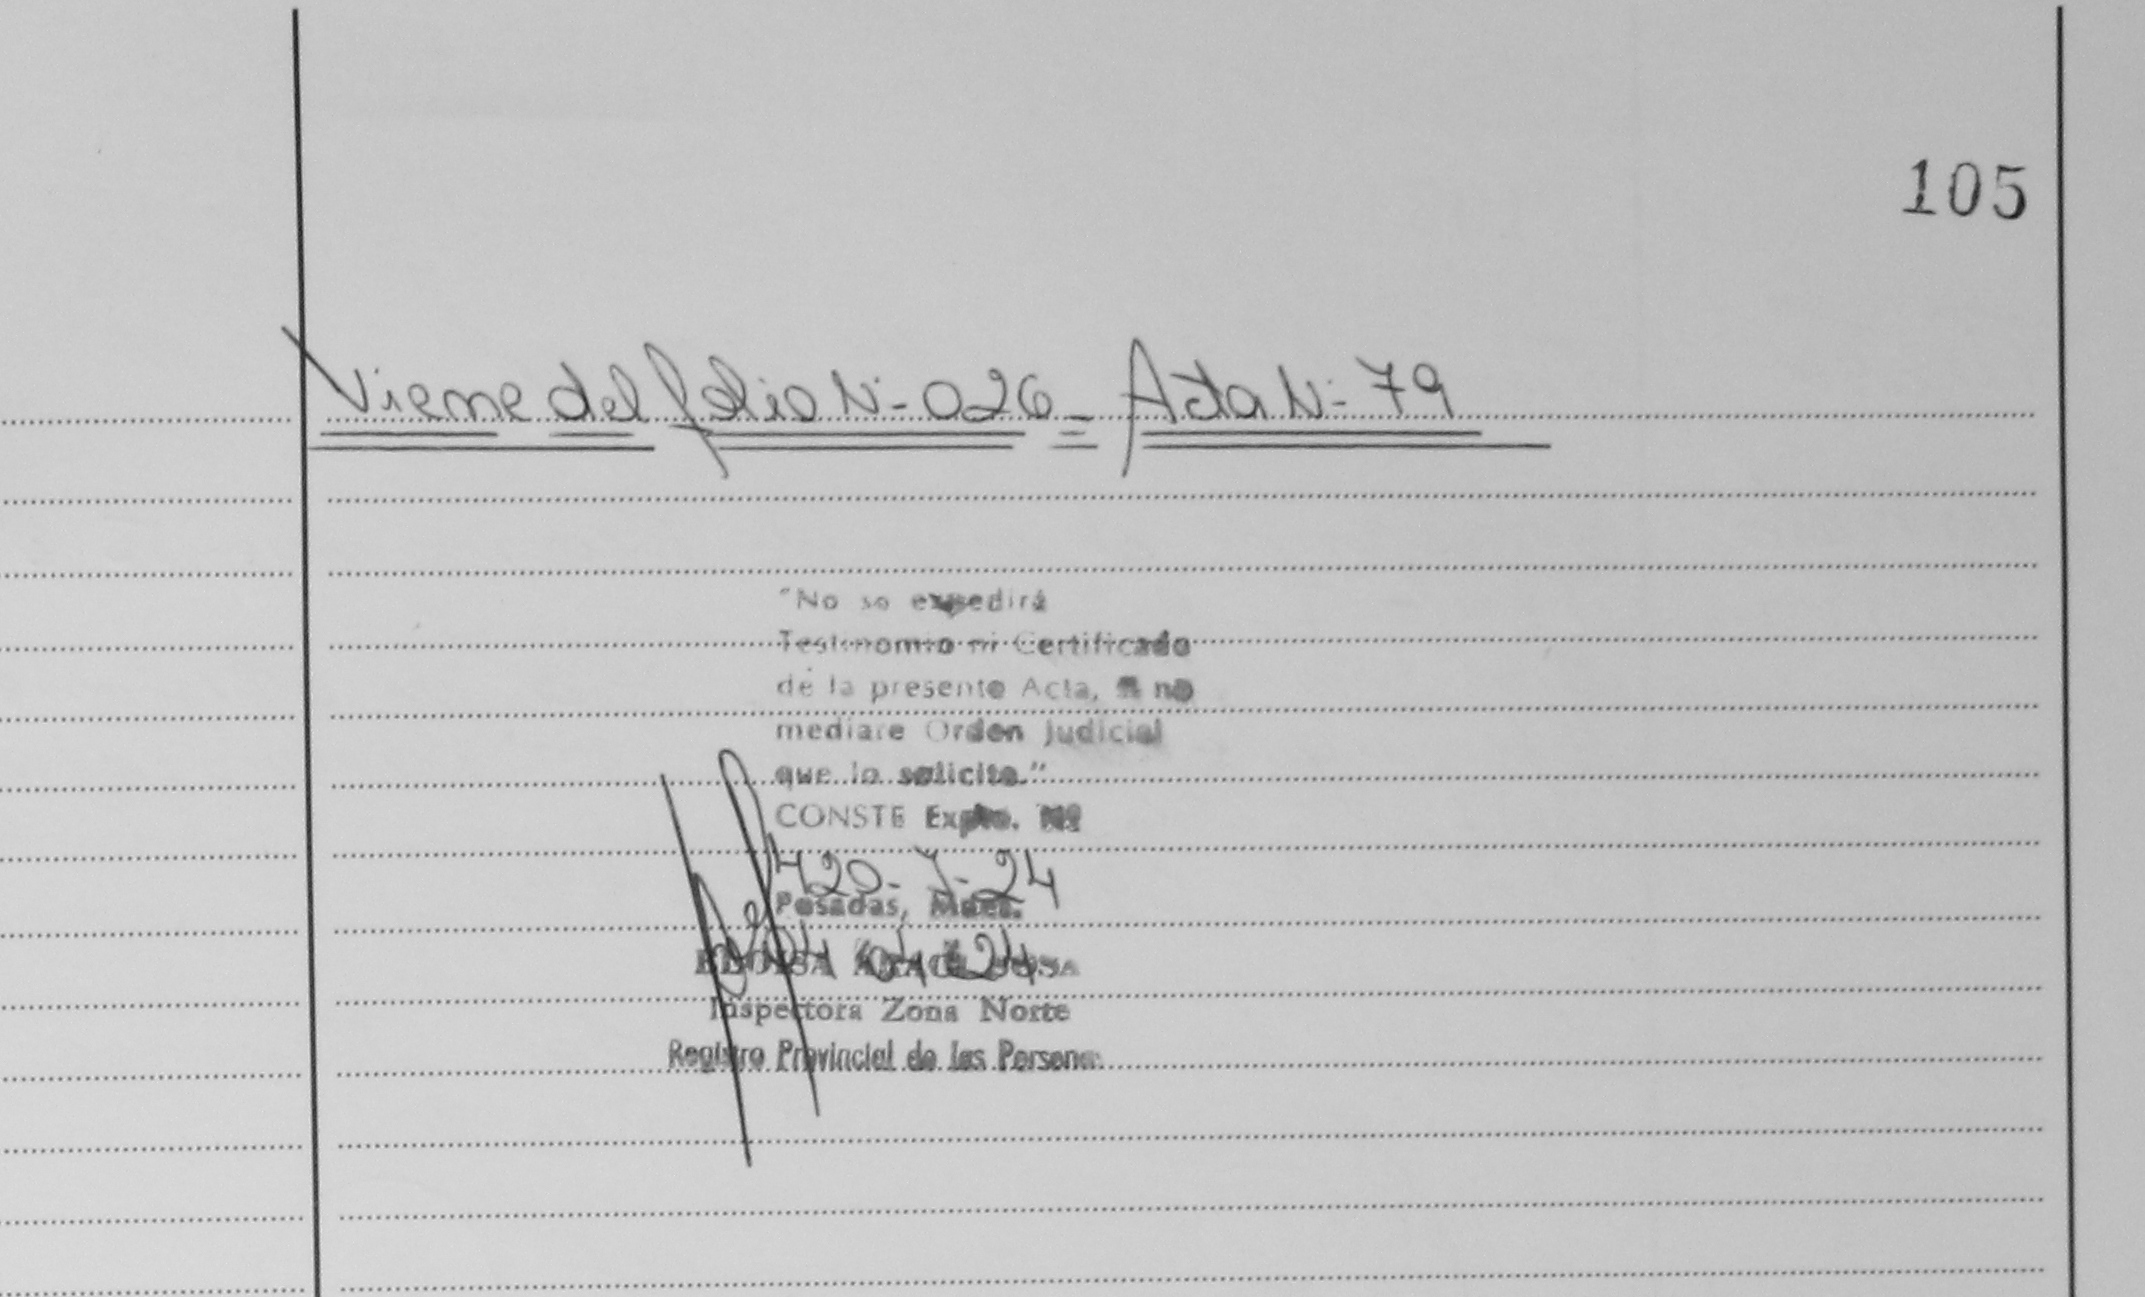 105
Viene del folio N- 026 - Acta N- 79
"No se expedirá
Testimonio ni Certificado
de la presente Acta, si no
mediare Orden Judicial
que lo solicite."
CONSTE Expte. Nº
420- Y-24
Posadas, Mnes.
04 04 24
Inspectora Zona Norte
Registro Provincial de las Personas